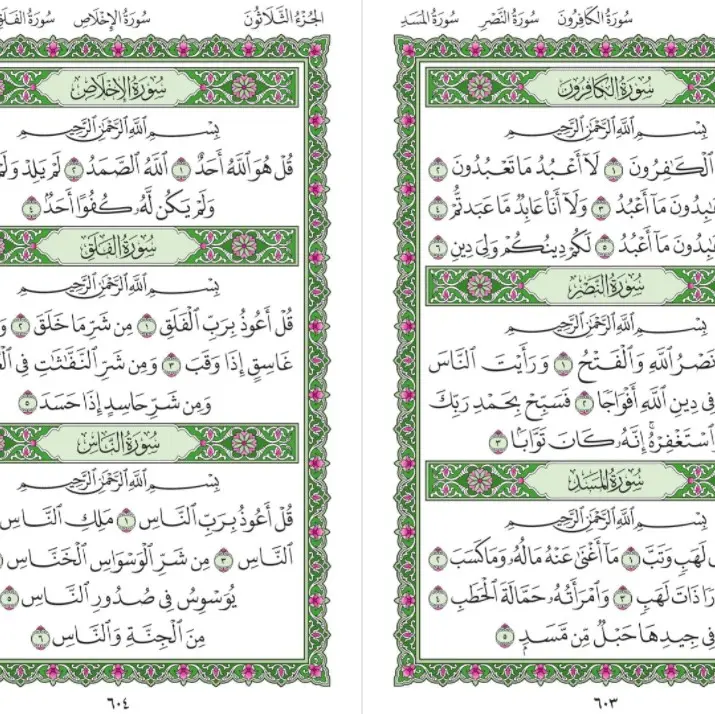 سُورَةُ الكَافِرُونَ سُورَةُ النَّصْرِ سُورَةُ المَسَدِ
سُورَةُ الكَافِرُونَ
بِسْمِ ٱللَّهِ ٱلرَّحْمَٰنِ ٱلرَّحِيمِ
ٱلْكَٰفِرُونَ ١ لَآ أَعْبُدُ مَا تَعْبُدُونَ ٢
مَآ أَعْبُدُ ٣ وَلَآ أَنَا۠ عَابِدٌ مَّا عَبَدتُّمْ ٤
مَآ أَعْبُدُ ٥ لَكُمْ دِينُكُمْ وَلِىَ دِينِ ٦
سُورَةُ النَّصْرِ
بِسْمِ ٱللَّهِ ٱلرَّحْمَٰنِ ٱلرَّحِيمِ
نَصْرُ ٱللَّهِ وَٱلْفَتْحُ ١ وَرَأَيْتَ ٱلنَّاسَ
فِى دِينِ ٱللَّهِ أَفْوَاجًا ٢ فَسَبِّحْ بِحَمْدِ رَبِّكَ
ٱسْتَغْفِرْهُ ۚ إِنَّهُۥ كَانَ تَوَّابًۢا ٣
سُورَةُ المَسَدِ
بِسْمِ ٱللَّهِ ٱلرَّحْمَٰنِ ٱلرَّحِيمِ
لَهَبٍ وَتَبَّ ١ مَآ أَغْنَىٰ عَنْهُ مَالُهُۥ وَمَا كَسَبَ ٢
ذَاتَ لَهَبٍ ٣ وَٱمْرَأَتُهُۥ حَمَّالَةَ ٱلْحَطَبِ ٤
فِى جِيدِهَا حَبْلٌ مِّن مَّسَدٍۭ ٥
٦٠٣
الجُزْءُ الثَّلَاثُونَ سُورَةُ الإِخْلَاصِ سُورَةُ الفَلَقِ
سُورَةُ الإِخْلَاصِ
بِسْمِ ٱللَّهِ ٱلرَّحْمَٰنِ ٱلرَّحِيمِ
قُلْ هُوَ ٱللَّهُ أَحَدٌ ١ ٱللَّهُ ٱلصَّمَدُ ٢ لَمْ يَلِدْ وَلَمْ
وَلَمْ يَكُن لَّهُۥ كُفُوًا أَحَدٌۢ ٤
سُورَةُ الفَلَقِ
بِسْمِ ٱللَّهِ ٱلرَّحْمَٰنِ ٱلرَّحِيمِ
قُلْ أَعُوذُ بِرَبِّ ٱلْفَلَقِ ١ مِن شَرِّ مَا خَلَقَ ٢
غَاسِقٍ إِذَا وَقَبَ ٣ وَمِن شَرِّ ٱلنَّفَّٰثَٰتِ فِى
وَمِن شَرِّ حَاسِدٍ إِذَا حَسَدَ ٥
سُورَةُ النَّاسِ
بِسْمِ ٱللَّهِ ٱلرَّحْمَٰنِ ٱلرَّحِيمِ
قُلْ أَعُوذُ بِرَبِّ ٱلنَّاسِ ١ مَلِكِ ٱلنَّاسِ
ٱلنَّاسِ ٣ مِن شَرِّ ٱلْوَسْوَاسِ ٱلْخَنَّاسِ
يُوَسْوِسُ فِى صُدُورِ ٱلنَّاسِ ٥
مِنَ ٱلْجِنَّةِ وَٱلنَّاسِ ٦
٦٠٤